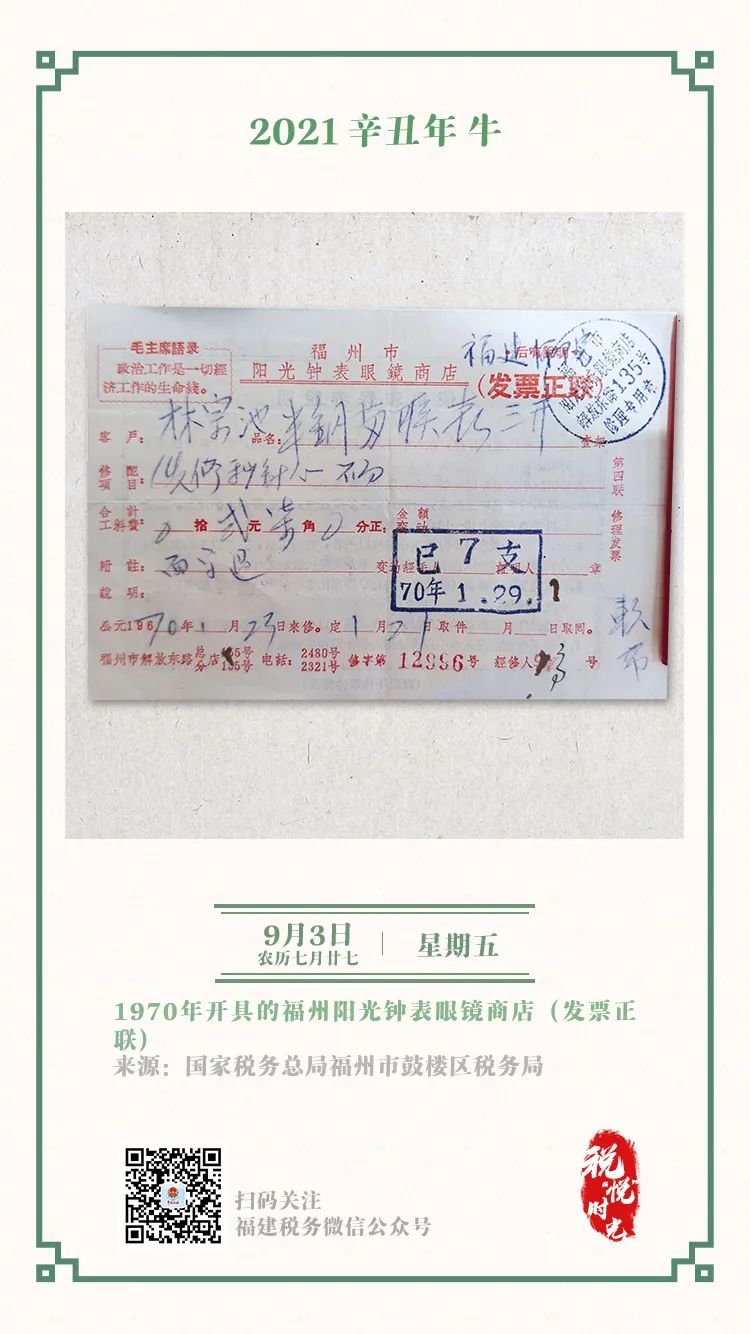 2021 辛丑年 牛
毛主席語录
政治工作是一切經
济工作的生命綫。
福州市
阳光钟表眼镜商店
(发票正联)
福建师院
阳光钟表眼镜商店
解放东路135号
修理专用章
客戶: 林宗池 品名: 三开
修配
項目: 修 秒針
第四联 修理发票
合計
工料費: 0 拾 弍 元 角 0 分正:
金額
变动
附註:
說明:
变动經手人 經理人 章
付 7 支
70年 1.29. 1
公元1967 70年 1 月 23 日來修。定 1 月 29 日取件 月 日取囘。
福州市解放东路 总店 号 分 135号 电话: 2480号 2321号 修字第 12996 号 經修人 号
9月3日
农历七月廿七
星期五
1970年开具的福州阳光钟表眼镜商店（发票正
联）
来源：国家税务总局福州市鼓楼区税务局
扫码关注
福建税务微信公众号
税"悦"时光